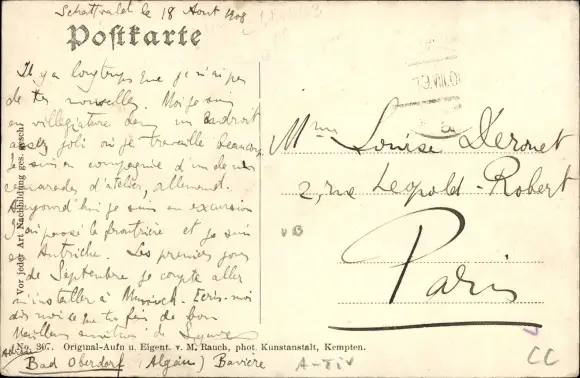 Schattwald le 18 Aout 1908
Postkarte
Il y a longtemps que je n'ai pas
de tes nouvelles. Moi je suis
en villégiature dans un endroit
assez joli où je travaille beaucoup
Je suis en compagnie d'un de mes
camarades d'atelier, allemand.
Aujourd'hui je suis en excursion
J'ai passé la frontière et je suis
en Autriche. Les premiers jours
de Septembre je compte aller
m'installer à Munich. Ecris-moi
dis moi ce que tu fais de bon
Meilleurs
Bad Oberdorf (Algäu) Bavière
Vor jeder Art Nachbildung ges. gesch.
No. 367. Original-Aufn u. Eigent. v. M. Rauch, phot. Kunstanstalt, Kempten.
Mme Louise Deronet
2, rue Léopold-Robert
Paris
VB
A-Tiv
CC